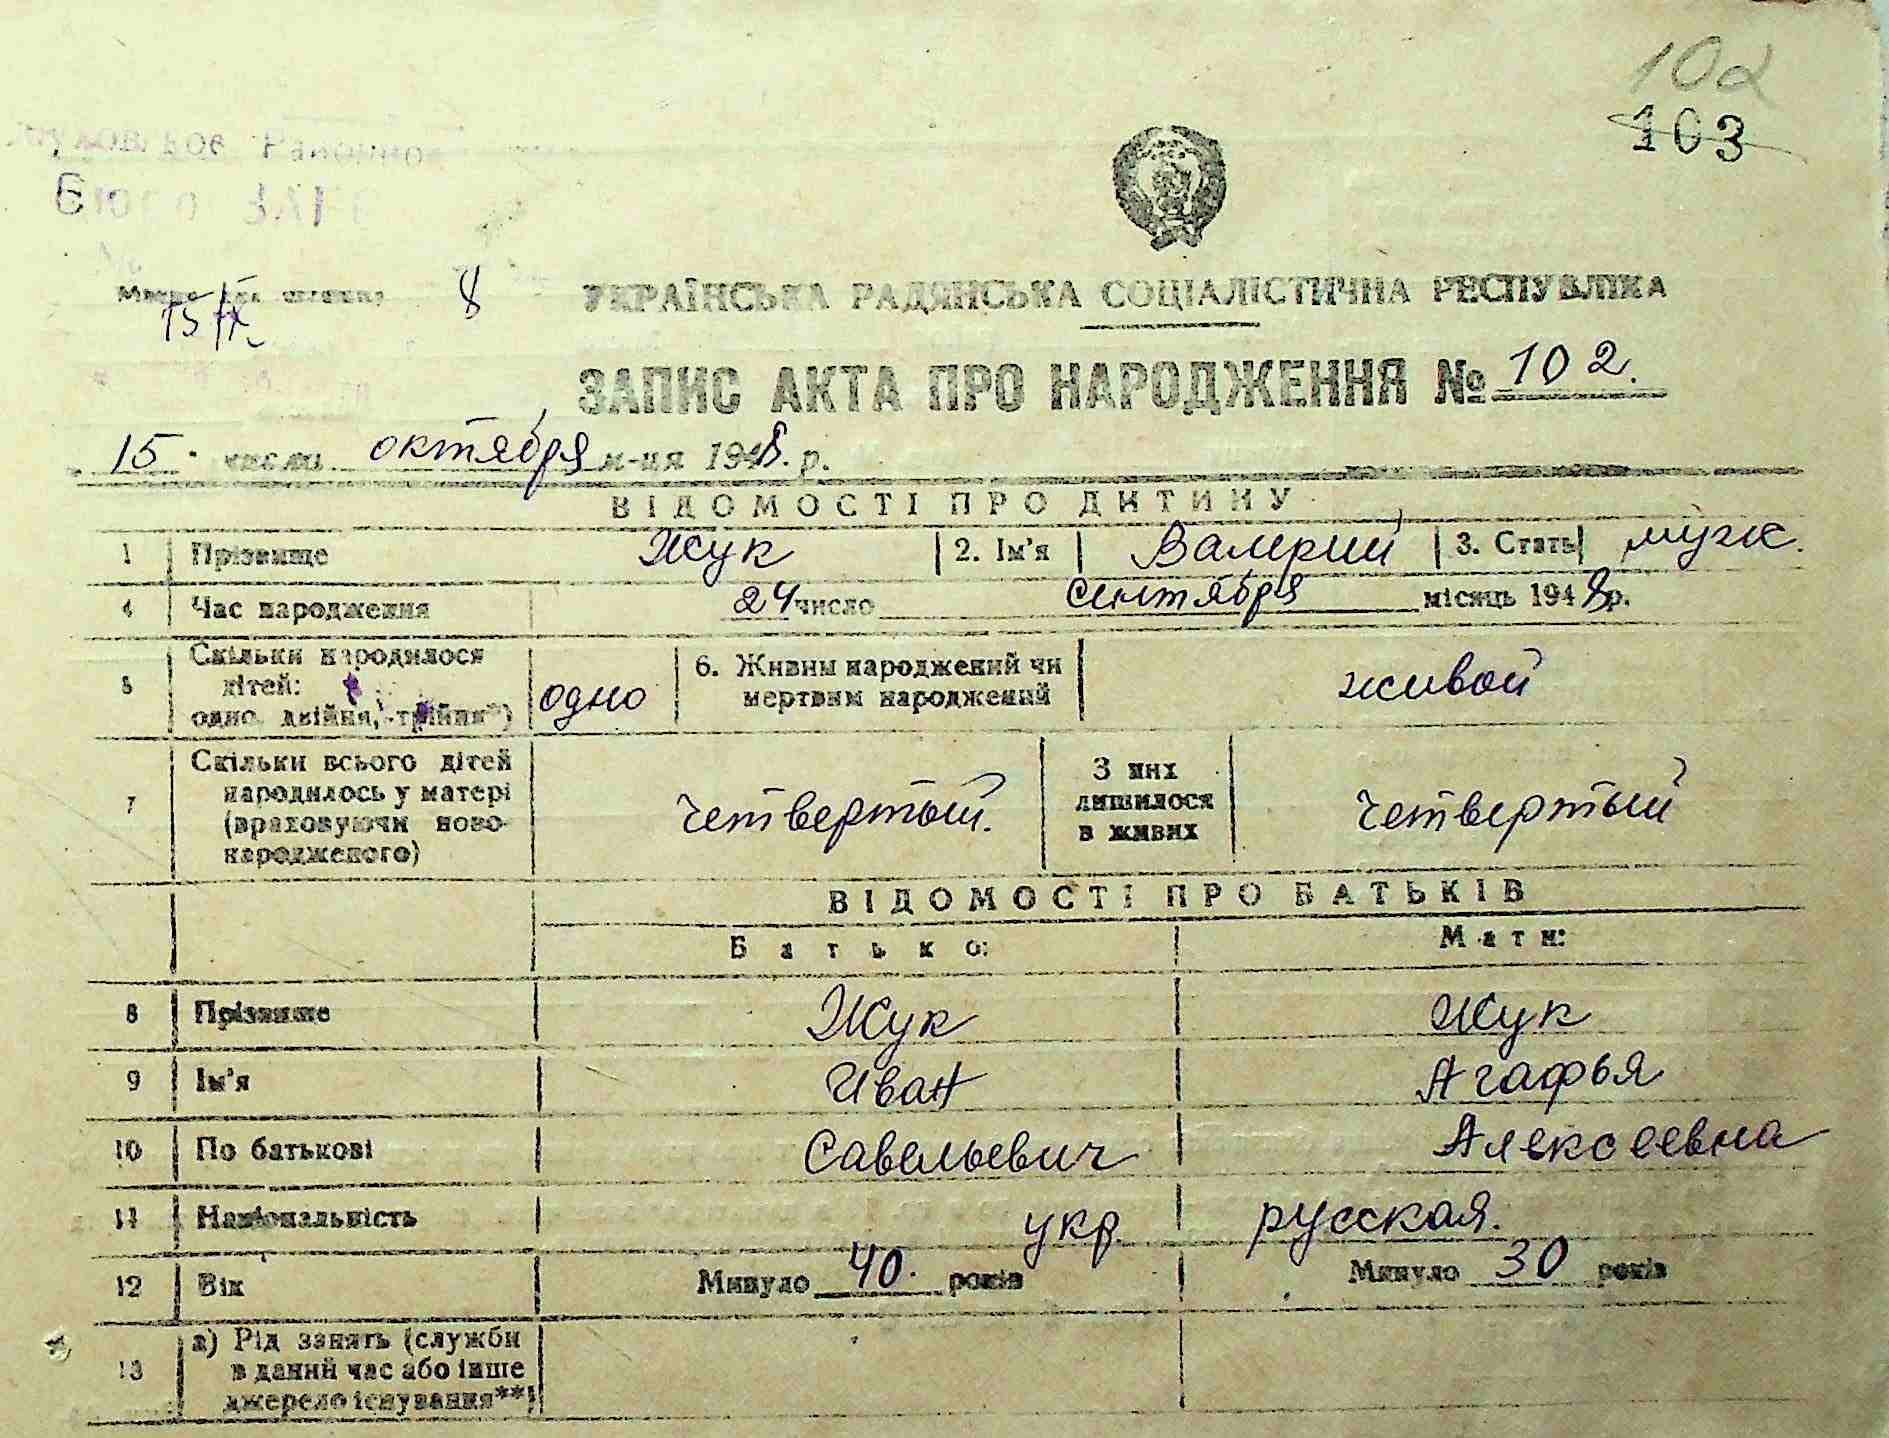 102
103
8
УКРАЇНСЬКА РАДЯНСЬКА СОЦІАЛІСТИЧНА РЕСПУБЛІКА
ЗАПИС АКТА ПРО НАРОДЖЕННЯ № 102.
15 числа октября м-ця 1948. р.
ВІДОМОСТІ ПРО ДИТИНУ
1 Прізвище Жук 2. Ім'я Валерий 3. Стать муж.
4 Час народження 24 число сентября місяць 1948р.
5 Скільки народилося дітей: одно, двійня, трійня*) одно 6. Живим народжений чи мертвим народжений живой
7 Скільки всього дітей народилось у матері (враховуючи ново-народженого) четвертый. З них лишилося в живих четвертый
ВІДОМОСТІ ПРО БАТЬКІВ
Батько: Мати:
8 Прізвище Жук Жук
9 Ім'я Иван Агафья
10 По батькові Савельевич Алексеевна
11 Національність укр. русская.
12 Вік Минуло 40. років Минуло 30 років
13 а) Рід занять (служби в даний час або інше джерело існування**)